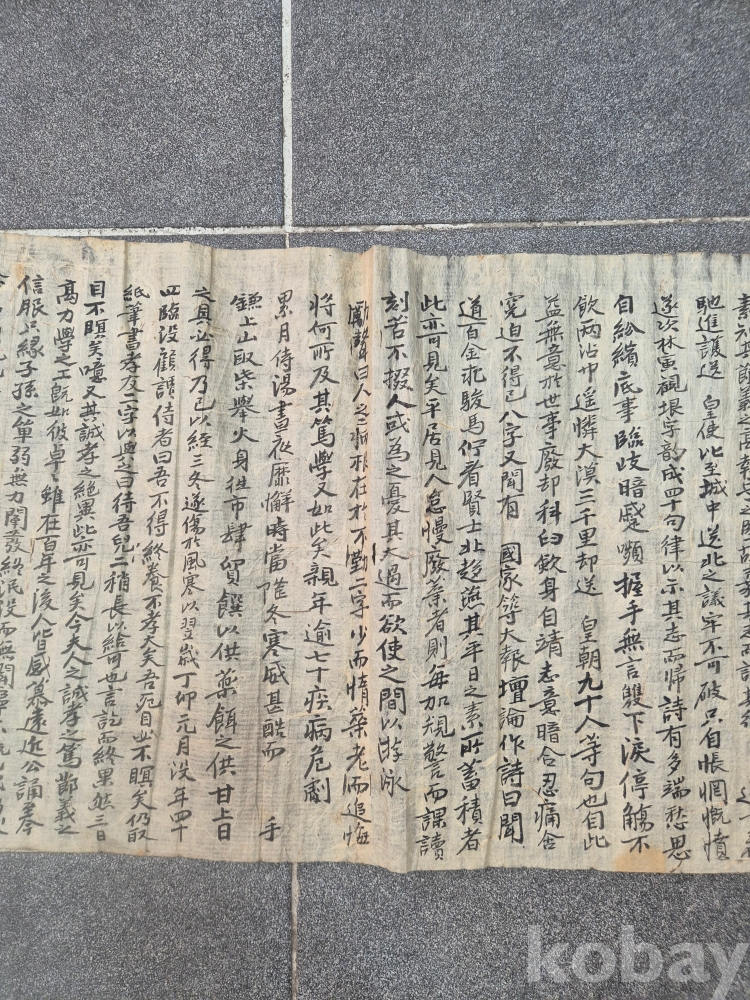 馳進護送 皇使比至城中送北之議牢不可破只自悵惘慨憤
遂次林寅觀垠字韻成四十句律以示其志而帰詩有多端愁思
自紛繽底事臨歧暗蹙嚬握手無言雙下淚停觴不
飲两沾巾遥憐大漠三千里却送 皇朝九十人等句也自此
益無意於世事廢却科臼欽身自靖志意暗合忍痛含
寃迫不得已八字又聞有 國家築大報壇論作詩曰聞
道百金求駿馬佇看賢士北趍燕其平日之素所蓄積者
此亦可見矣平居見人怠慢廢業者則每加規警而課讀
刻苦不掇人或為之憂其太過而欲使之間以游泳
勵聲曰人之病根在於不勤二字少而惰業老而追悔
將何所及其篤學又如此矣親年逾七十疾病危劇
累月侍湯晝夜靡懈時當隆冬寒威甚酷而 手
鎌上山取柴舉火身徃市肆貿饌以供藥餌之供甘上日
之具必得乃已以經三冬遂傷於風寒以翌歲丁卯元月没年四十
四臨没顧謂侍者曰吾不得終養不孝大矣吾死目必不瞑矣仍取
紙筆書孝友二字以與曰待吾兒二稍長以給可也言訖而終果然三日
目不瞑矣噫又其誠孝之絶異此亦可見矣今夫人之誠孝之篤鄒義之
高力學之工既如彼卓卓雖在百年之後人皆感慕遠近公誦

信服只緣子孫之單弱無力闡發終泯没而無聞